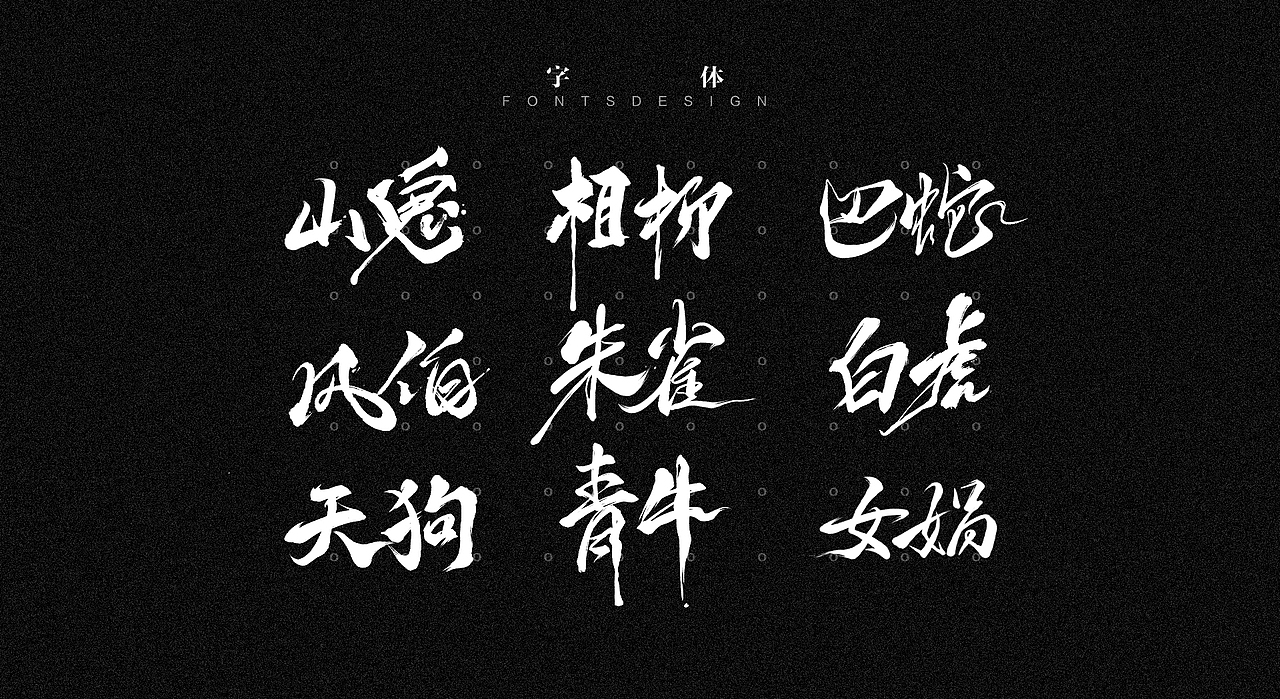 字 体
FONTSDESIGN
山隐 相柳 巴蛇
风伯 朱雀 白虎
天狗 青牛 女娲